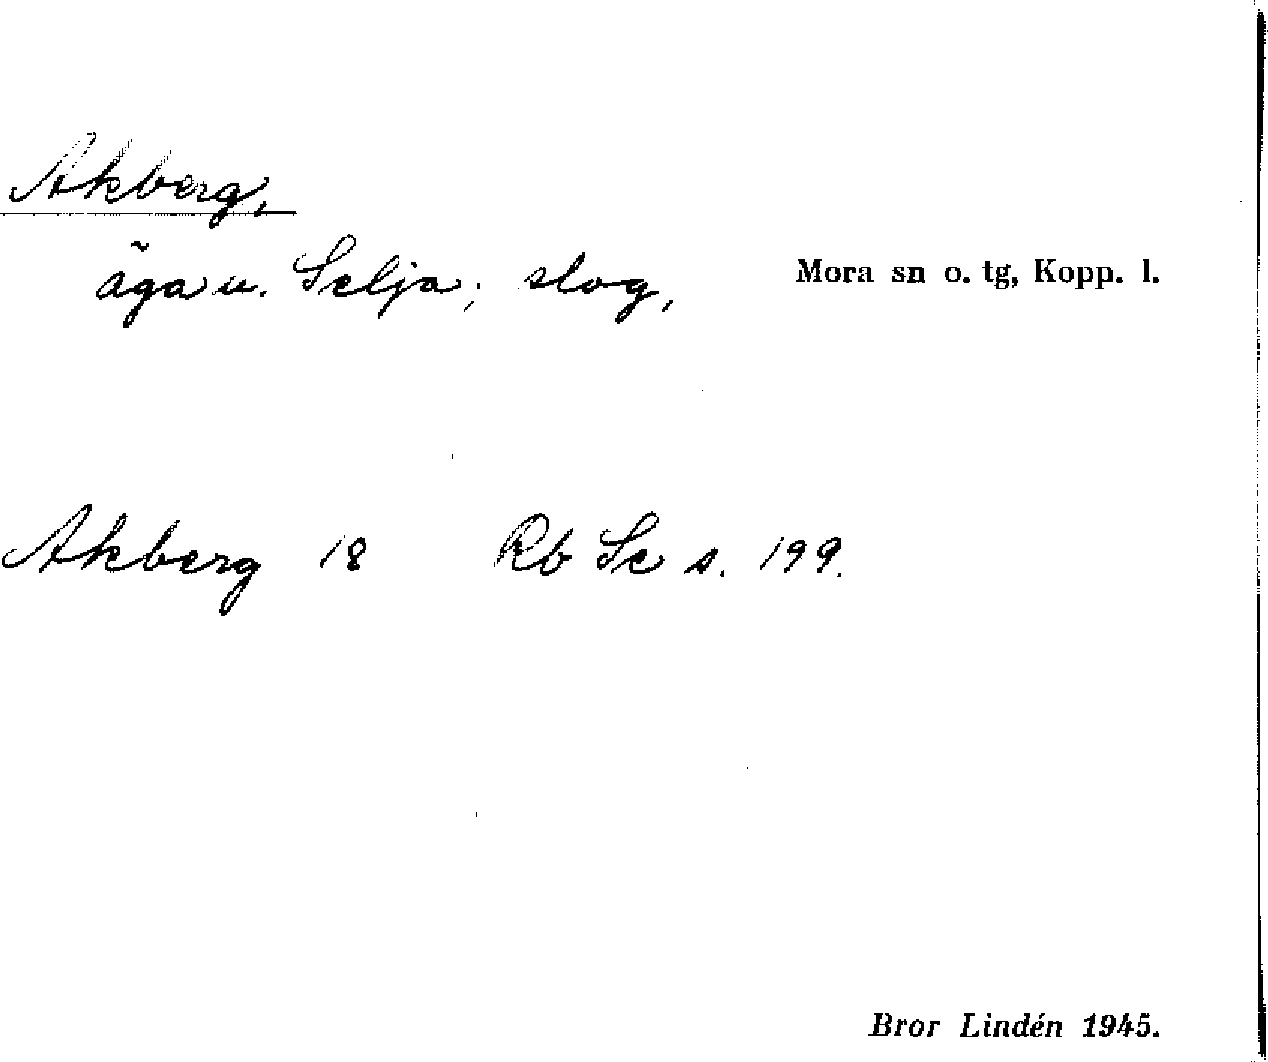 Akberg,
äga u. Selja; slog,
Mora sn o. tg, Kopp. l.
Akberg 18 Rb Se s. 199.
Bror Lindén 1945.